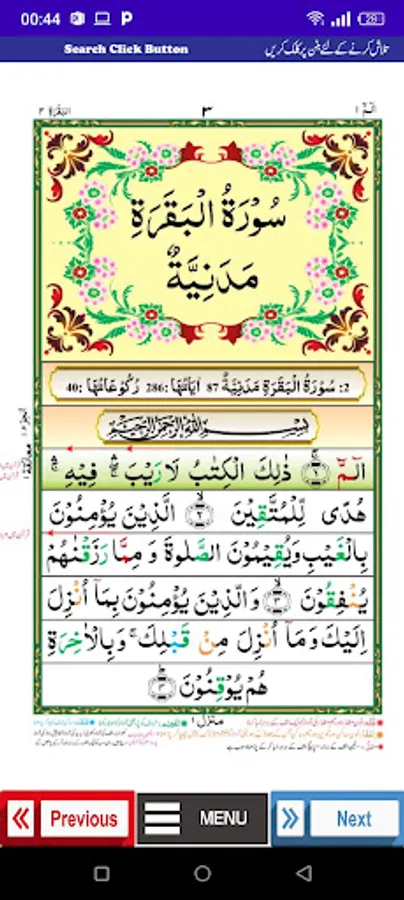 00:44 P 28
Search Click Button تلاش کرنے کے لئے بٹن پر کلک کریں
البقرة ٢ ٣ الٓمّٓ ١
سُوْرَةُ الْبَقَرَةِ
مَدَنِيَّةٌ
2: سُوْرَةُ الْبَقَرَةِ مَدَنِيَّةٌ 87 اٰيَاتُهَا: 286 رُكُوْعَاتُهَا: 40
بِسْمِ اللّٰهِ الرَّحْمٰنِ الرَّحِيْمِ
الٓمّٓ ۚ ١ ذٰلِكَ الْكِتٰبُ لَا رَيْبَ ۛۚ فِيْهِ ۛۚ
هُدًى لِّلْمُتَّقِيْنَ ۙ ٢ الَّذِيْنَ يُؤْمِنُوْنَ
بِالْغَيْبِ وَيُقِيْمُوْنَ الصَّلٰوةَ وَ مِمَّا رَزَقْنٰهُمْ
يُنْفِقُوْنَ ۙ ٣ وَالَّذِيْنَ يُؤْمِنُوْنَ بِمَاۤ اُنْزِلَ
اِلَيْكَ وَمَاۤ اُنْزِلَ مِنْ قَبْلِكَ ۚ وَبِالْاٰخِرَةِ
هُمْ يُوْقِنُوْنَ ؕ ٤
منزل ١
Previous MENU Next